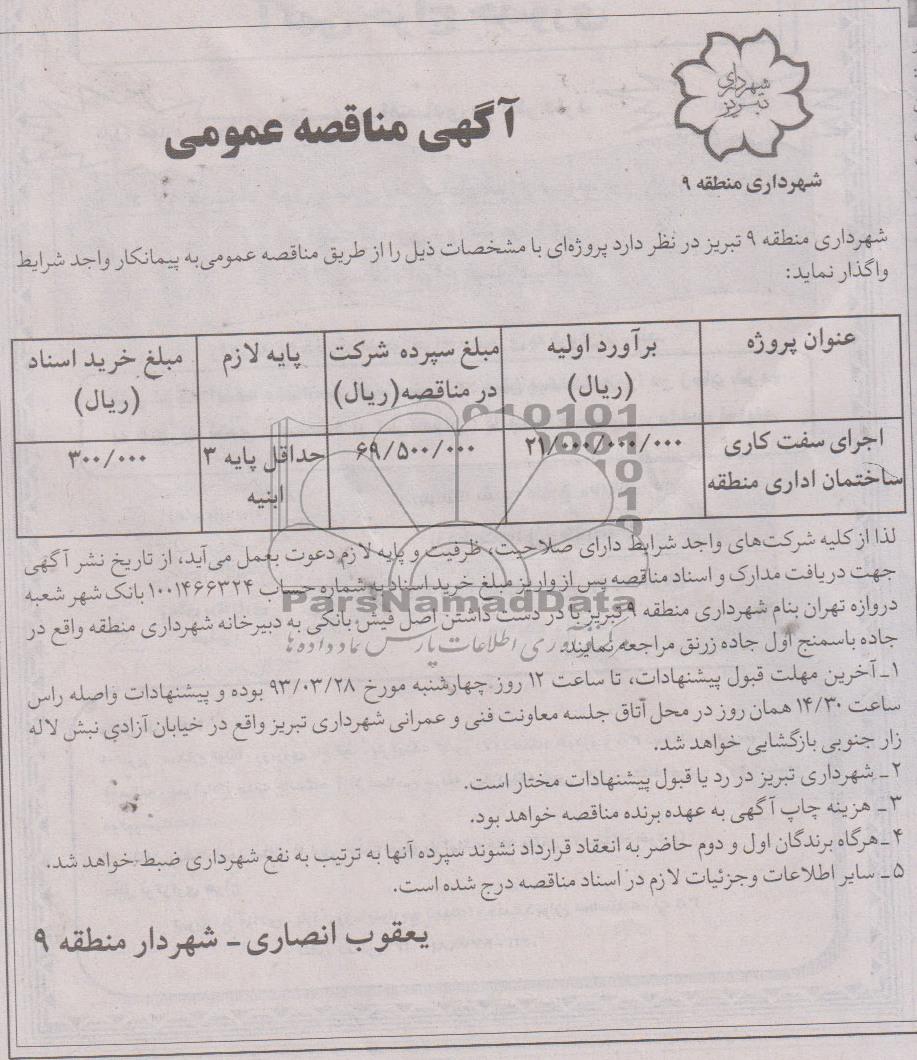 شهرداری تبریز
شهرداری منطقه ۹
آگهی مناقصه عمومی
شهرداری منطقه ۹ تبریز در نظر دارد پروژه‌ای با مشخصات ذیل را از طریق مناقصه عمومی به پیمانکار واجد شرایط
واگذار نماید:
عنوان پروژه
برآورد اولیه (ریال)
مبلغ سپرده شرکت در مناقصه (ریال)
پایه لازم
مبلغ خرید اسناد (ریال)
اجرای سفت کاری ساختمان اداری منطقه
۲۱/۰۰۰/۰۰۰/۰۰۰
۶۹/۵۰۰/۰۰۰
حداقل پایه ۳ ابنیه
۳۰۰/۰۰۰
لذا از کلیه شرکت‌های واجد شرایط دارای صلاحیت، ظرفیت و پایه لازم دعوت بعمل می‌آید، از تاریخ نشر آگهی
جهت دریافت مدارک و اسناد مناقصه پس از واریز مبلغ خرید اسناد به شماره حساب ۱۰۰۱۴۶۶۳۲۴ بانک شهر شعبه
دروازه تهران بنام شهرداری منطقه ۹ تبریز با در دست داشتن اصل فیش بانکی به دبیرخانه شهرداری منطقه واقع در
جاده باسمنج اول جاده زرنق مراجعه نمایند.
۱ـ آخرین مهلت قبول پیشنهادات، تا ساعت ۱۲ روز چهارشنبه مورخ ۹۳/۰۳/۲۸ بوده و پیشنهادات واصله راس
ساعت ۱۴/۳۰ همان روز در محل آتاق جلسه معاونت فنی و عمرانی شهرداری تبریز واقع در خیابان آزادی نبش لاله
زار جنوبی بازگشایی خواهد شد.
۲ـ شهرداری تبریز در رد یا قبول پیشنهادات مختار است.
۳ـ هزینه چاپ آگهی به عهده برنده مناقصه خواهد بود.
۴ـ هرگاه برندگان اول و دوم حاضر به انعقاد قرارداد نشوند سپرده آنها به ترتیب به نفع شهرداری ضبط خواهد شد.
۵ـ سایر اطلاعات وجزئیات لازم در اسناد مناقصه درج شده است.
یعقوب انصاری ـ شهردار منطقه ۹
ParsNamadData